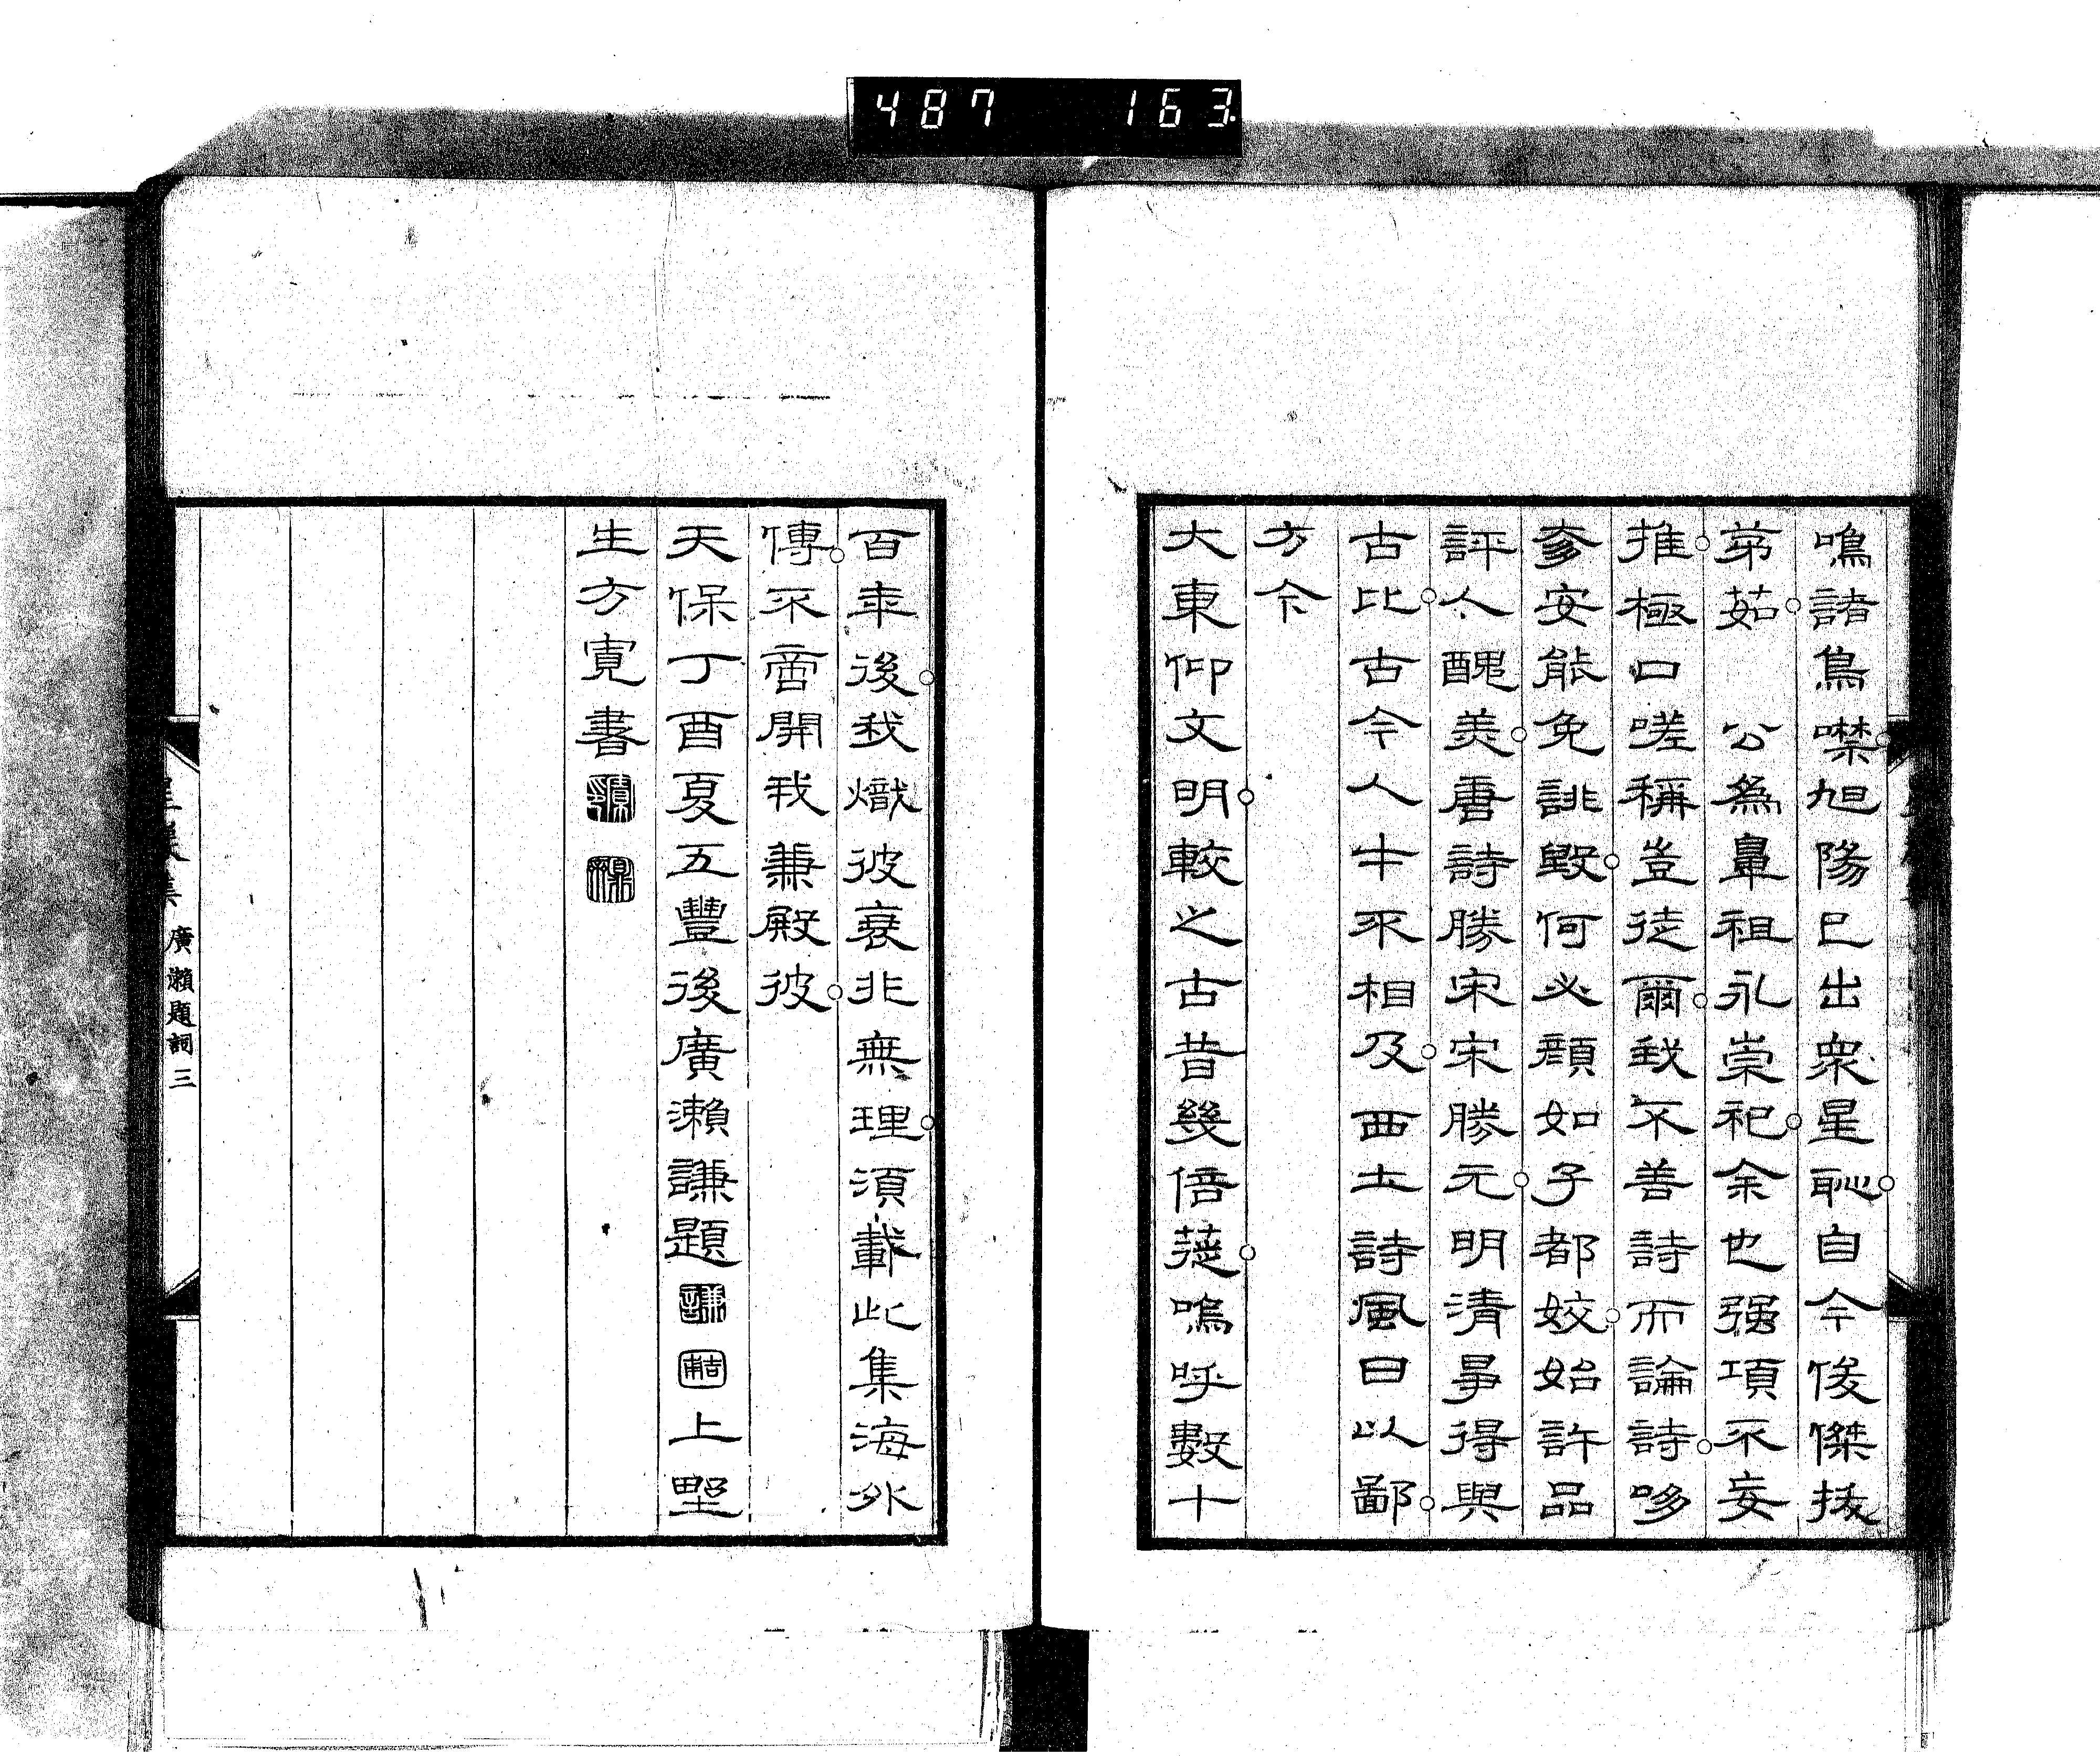 487 163
鳴諸鳥噤旭陽已出衆星恥自今俊傑拔
茅茹 公爲鼻祖永崇祀余也强項不妄
推極口嗟稱豈徒爾我不善詩而論詩哆
奓安能免誹毀何必顏如子都姣始許品
評人醜美唐詩勝宋宋勝元明清爭得與
古比古今人才不相及西土詩風日以鄙
方今
大東仰文明較之古昔幾倍蓰嗚呼數十
百年後我熾彼衰非無理須載此集海外
傳不啻開我兼殿彼
天保丁酉夏五豐後廣瀨謙題 謙 吉甫 上野
生方寬書
廣瀨題詞 三